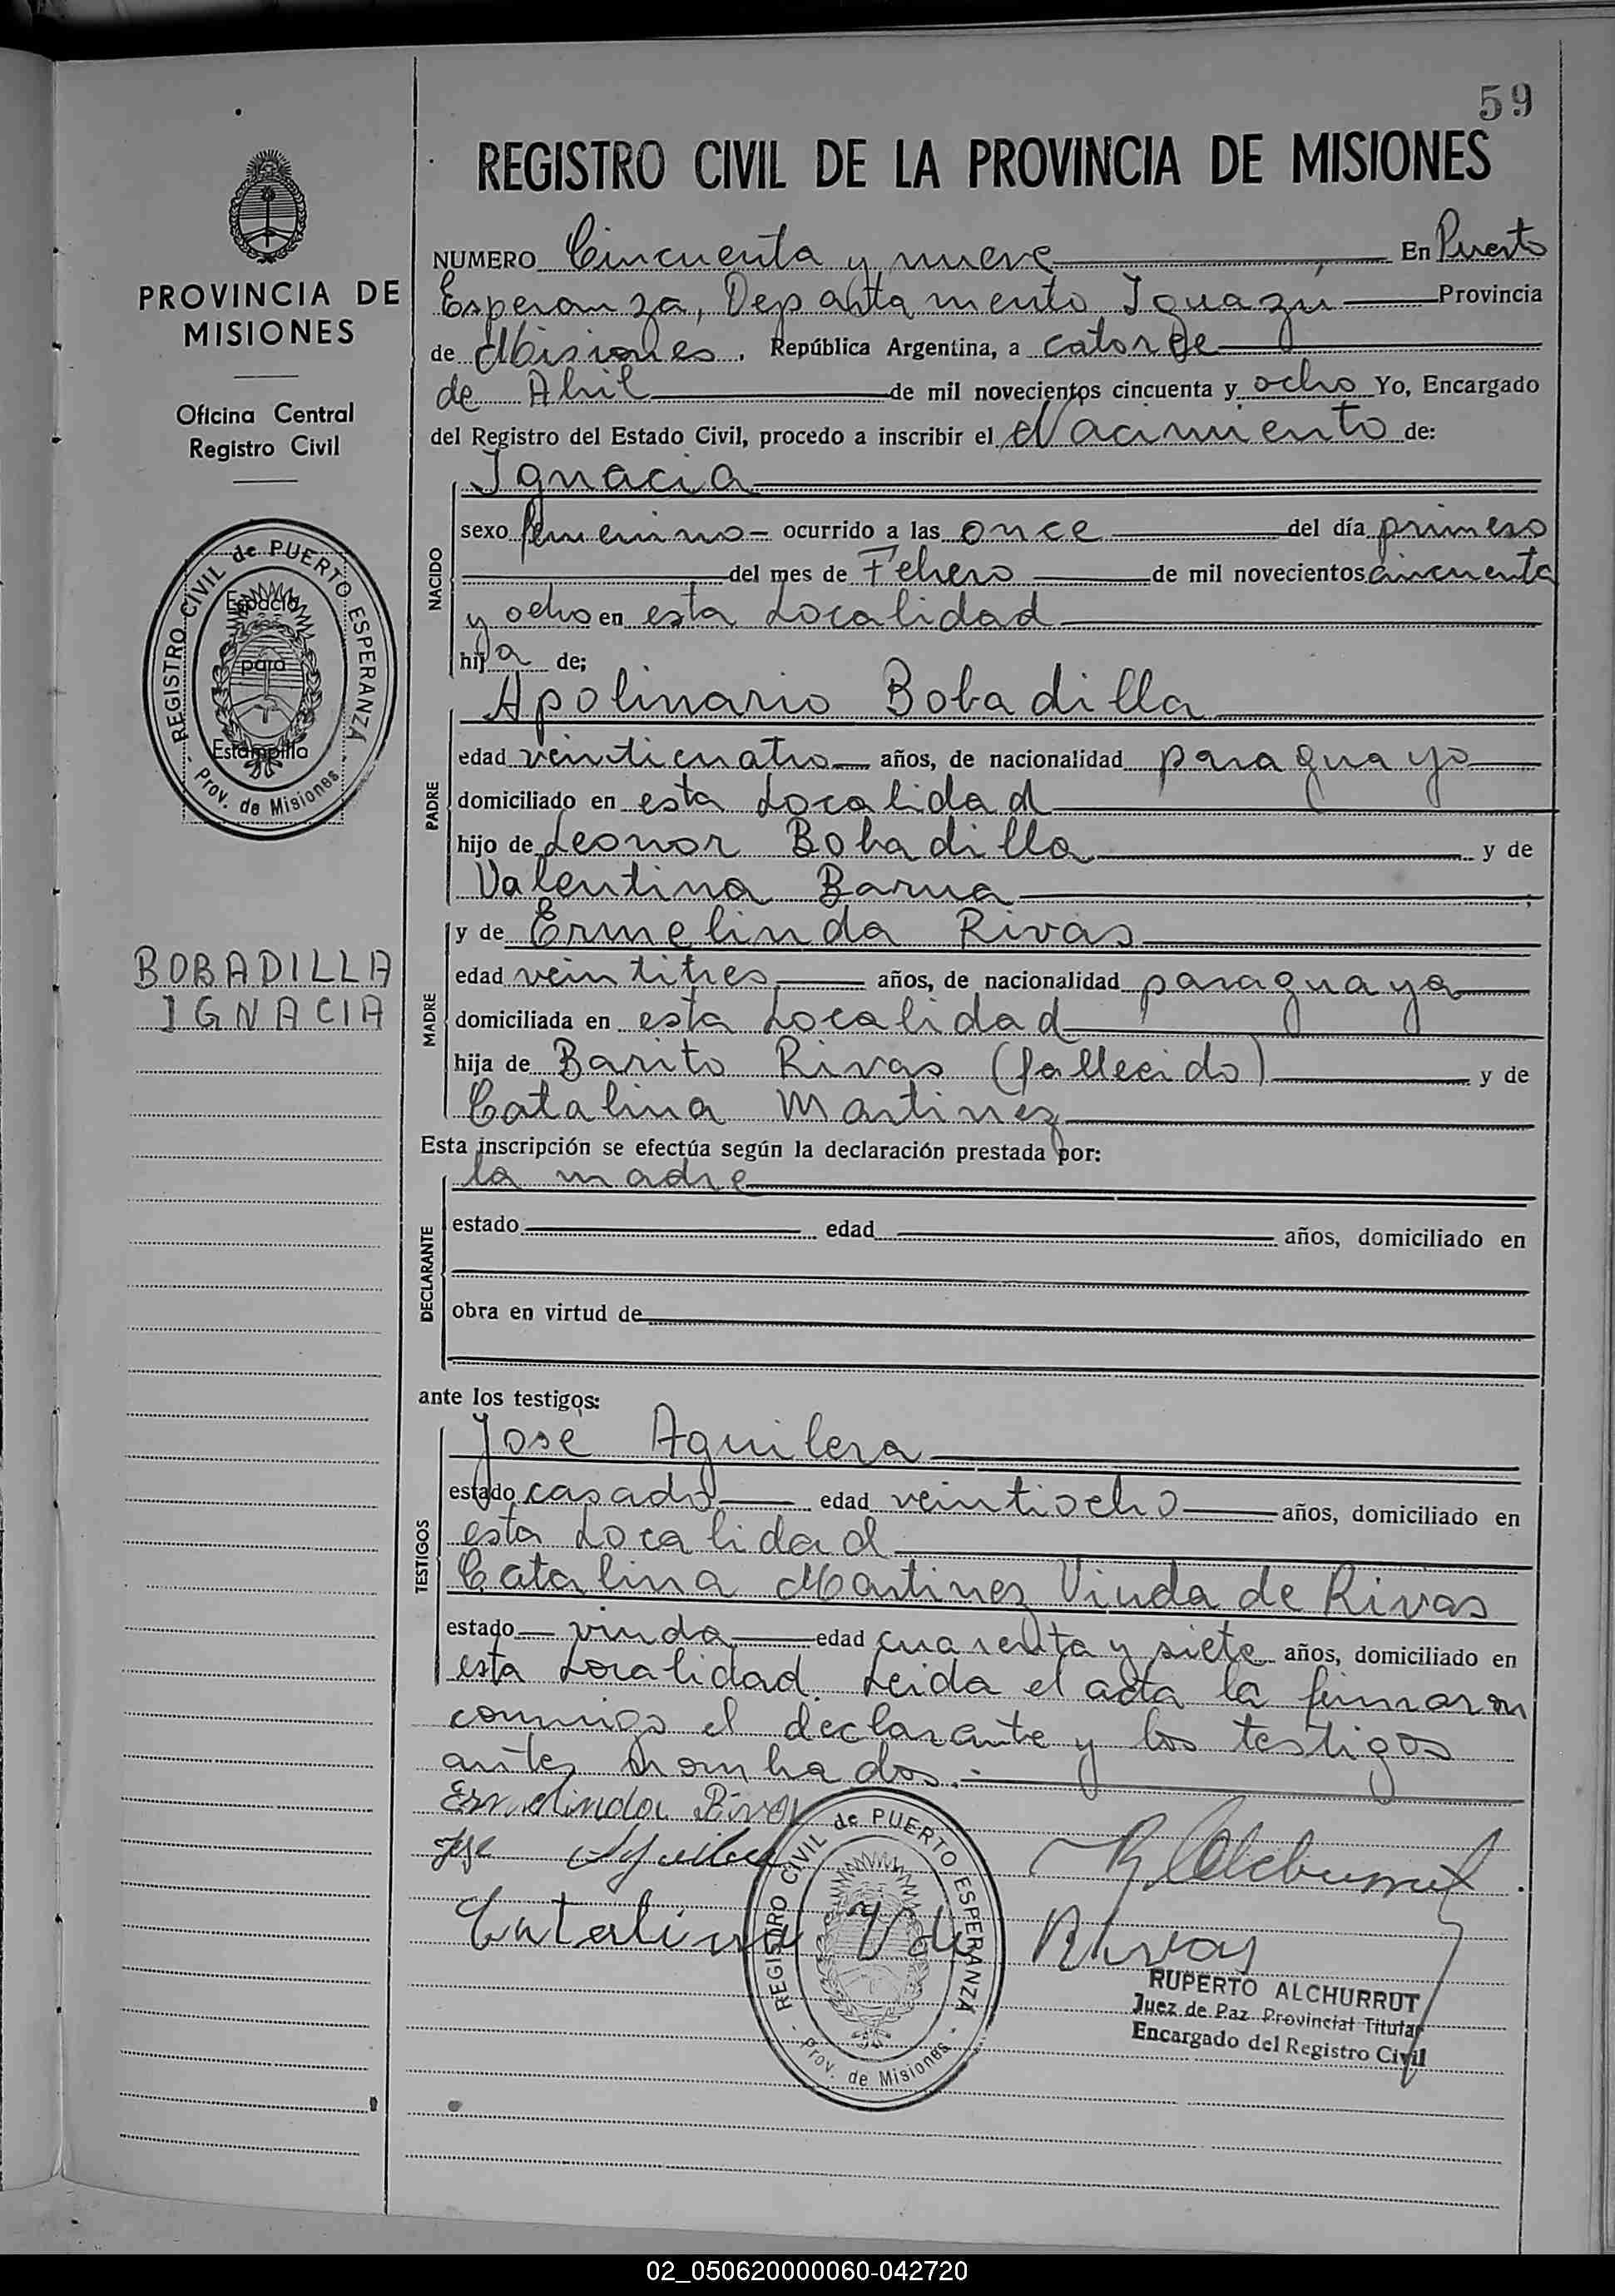 59
REGISTRO CIVIL DE LA PROVINCIA DE MISIONES
PROVINCIA DE
MISIONES
Oficina Central
Registro Civil
REGISTRO CIVIL de PUERTO ESPERANZA
- Prov. de Misiones -
Espacio
para
Estampilla
BOBADILLA
IGNACIA
NUMERO Cincuenta y nueve En Puerto
Esperanza, Departamento Iguazú Provincia
de Misiones, República Argentina, a catorce
de Abril de mil novecientos cincuenta y ocho Yo, Encargado
del Registro del Estado Civil, procedo a inscribir el Nacimiento de:
NACIDO
Ignacia
sexo femenino - ocurrido a las once del día primero
del mes de Febrero de mil novecientos cincuenta
y ocho en esta Localidad
hija de;
PADRE
Apolinario Bobadilla
edad veinticuatro años, de nacionalidad paraguayo
domiciliado en esta Localidad
hijo de Leonor Bobadilla y de
Valentina Barua ;
MADRE
y de Ermelinda Rivas
edad veintitres años, de nacionalidad paraguaya
domiciliada en esta Localidad
hija de Barito Rivas (fallecido) y de
Catalina Martinez
Esta inscripción se efectúa según la declaración prestada por:
DECLARANTE
la madre
estado edad años, domiciliado en
obra en virtud de
ante los testigos:
TESTIGOS
José Aguilera
estado casado edad veintiocho años, domiciliado en
esta Localidad
Catalina Martinez Viuda de Rivas
estado viuda edad cuarenta y siete años, domiciliado en
esta Localidad. Leida el acta la firmaron
conmigo el declarante y los testigos
antes nombrados.-
Ermelinda Rivas
Jose Aguilera
Catalina Vda Rivas
REGISTRO CIVIL de PUERTO ESPERANZA
- Prov. de Misiones -
RUPERTO ALCHURRUT
Juez de Paz Provincial Titular
Encargado del Registro Civil
02_050620000060-042720